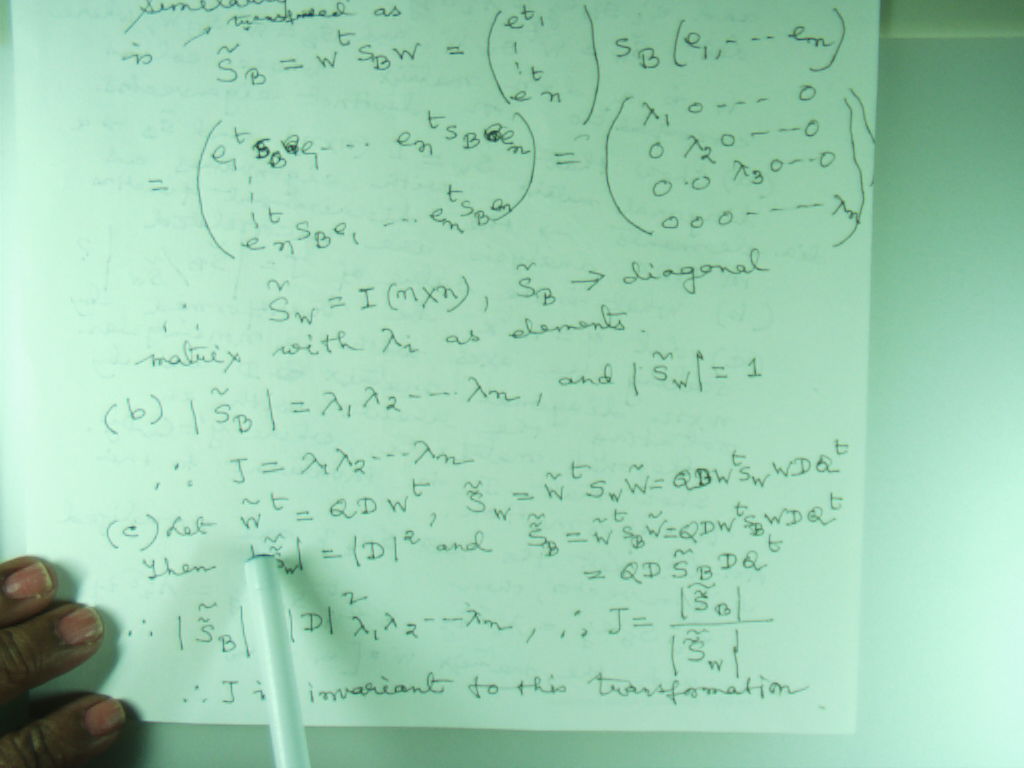 Similarly
transformed as
is S̃_B = W^t S_B W = (e^t_1 ⋮ e^t_n) S_B (e_1, --- e_n)
= (e_1^t S_B e_1 ... e_n^t S_B e_n ⋮ e_n^t S_B e_1 ... e_n^t S_B e_n) = (λ_1 0 --- 0 0 λ_2 0 --- 0 0 0 λ_3 0 -- 0 0 0 0 ---- λ_n)
∴ S̃_W = I (n×n), S̃_B → diagonal
matrix with λ_i as elements.
(b) |S̃_B| = λ_1 λ_2 --- λ_n, and |S̃_W| = 1
∴ J = λ_1 λ_2 --- λ_n
(c) Let W̃^t = QDW^t, S̃_W = W̃^t S_W W̃ = QDW^t S_W WDQ^t
Then |S̃̃_W| = |D|^2 and S̃̃_B = W̃^t S_B W̃ = QDW^t S_B WDQ^t
= QD S̃_B DQ^t
∴ |S̃̃_B| |D|^2 λ_1 λ_2 --- λ_n, ∴ J = |S̃̃_B| / |S̃̃_W|
∴ J is invariant to this transformation